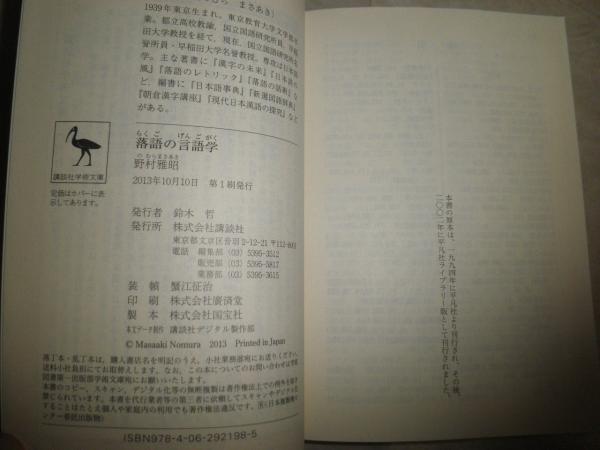 むら まさあき)
1939年東京生まれ。東京教育大学文学部卒
業。都立高校教諭、国立国語研究所員、早稲
田大学教授を経て、現在、国立国語研究所名
誉所員・早稲田大学名誉教授。専攻は日本語
学。主な著書に『漢字の未来』『日本語の
風』『落語のレトリック』『落語の話術』な
ど、編書に『日本語事典』『新選国語辞典』
『朝倉漢字講座』『現代日本漢語の探究』など
がある。
講談社学術文庫
定価はカバーに表
示してあります。
らくご げんごがく
落語の言語学
のむらまさあき
野村雅昭
2013年10月10日 第1刷発行
発行者 鈴木 哲
発行所 株式会社講談社
東京都文京区音羽2-12-21 〒112-8001
電話 編集部 (03) 5395-3512
販売部 (03) 5395-5817
業務部 (03) 5395-3615
装幀 蟹江征治
印刷 株式会社廣済堂
製本 株式会社国宝社
本文データ制作 講談社デジタル製作部
© Masaaki Nomura 2013 Printed in Japan
落丁本・乱丁本は、購入書店名を明記のうえ、小社業務部宛にお送りください。
送料小社負担にてお取替えします。なお、この本についてのお問い合わせは学術
図書第一出版部学術文庫宛にお願いいたします。
本書のコピー、スキャン、デジタル化等の無断複製は著作権法上での例外を除き
禁じられています。本書を代行業者等の第三者に依頼してスキャンやデジタル化
することはたとえ個人や家庭内の利用でも著作権法違反です。Ⓡ〈日本複製権セ
ンター委託出版物〉
ISBN978-4-06-292198-5
本書の原本は、一九九四年に平凡社より刊行され、その後、
二〇〇二年に平凡社ライブラリー版として刊行されました。